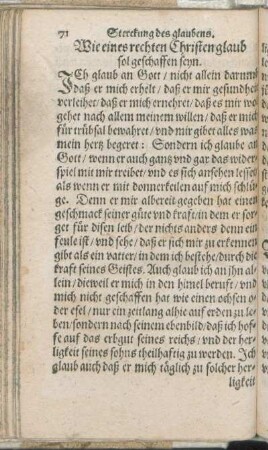 71 Sterckung des glaubens.
Wie eines rechten Christen glaub
sol geschaffen seyn.
ICh glaub an Gott / nicht allein darumb
daß er mich erhelt / daß er mir gesundheit
verleihet / daß er mich ernehret / daß es mir wol
gehet nach allem meinem willen / daß er mich
für trübsal bewahret / vnd mir gibet alles was
mein hertz begeret: Sondern ich glaube an
Gott / wenn er auch gantz vnd gar das wider-
spiel mit mir treibet / vnd es sich ansehen lesset
als wenn er mit donnerkeilen auf mich schlü-
ge. Denn er mir albereit gegeben hat einen
geschmack seiner güte vnd kraft / in dem er sor-
get für disen leib / der nichts anders denn ein
feule ist / vnd sehe / daß er sich mir zu erkennen
gibt als ein vatter / in dem ich bestehe / durch die
kraft seines Geistes. Auch glaub ich an ihn al-
lein / dieweil er mich in den himel beruft / vnd
mich nicht geschaffen hat wie einen ochsen o-
der esel / nur ein zeitlang alhie auf erden zu le-
ben / sondern nach seinem ebenbild / daß ich hof-
fe auf das erbgut seines reichs / vnd der her-
ligkeit seines sohns theilhaftig zu werden. Ich
glaub auch daß er mich täglich zu solcher her-
ligkeit